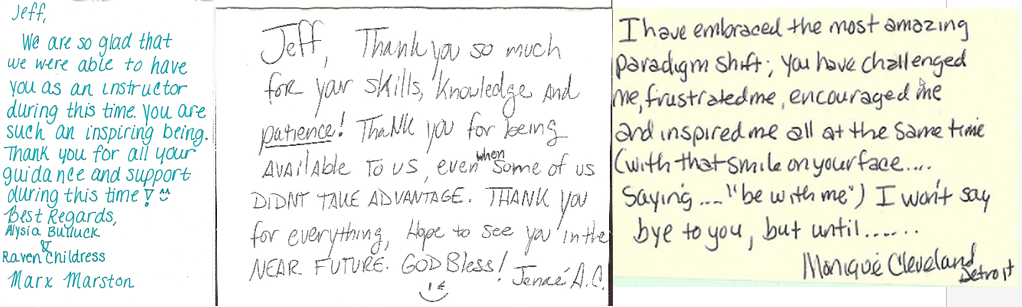 Jeff,
We are so glad that
we were able to have
you as an instructor
during this time. you are
such an inspiring being.
Thank you for all your
guidance and support
during this time!
Best Regards,
Alysia Bulluck
&
Raven Childress
Marx Marston
Jeff, Thank you so much
for your skills, knowledge and
patience! Thank you for being
AVAILABLE TO US, even when some of us
DIDNT TAKE ADVANTAGE. THANK you
for everything, Hope to see you in the
NEAR FUTURE. GOD Bless!
Jenaé A.C.
I have embraced the most amazing
paradigm shift; you have challenged
me, frustrated me, encouraged me
and inspired me all at the same time
(with that smile on your face....
saying.... "be with me") I won't say
bye to you, but until......
Monique Cleveland
Detroit